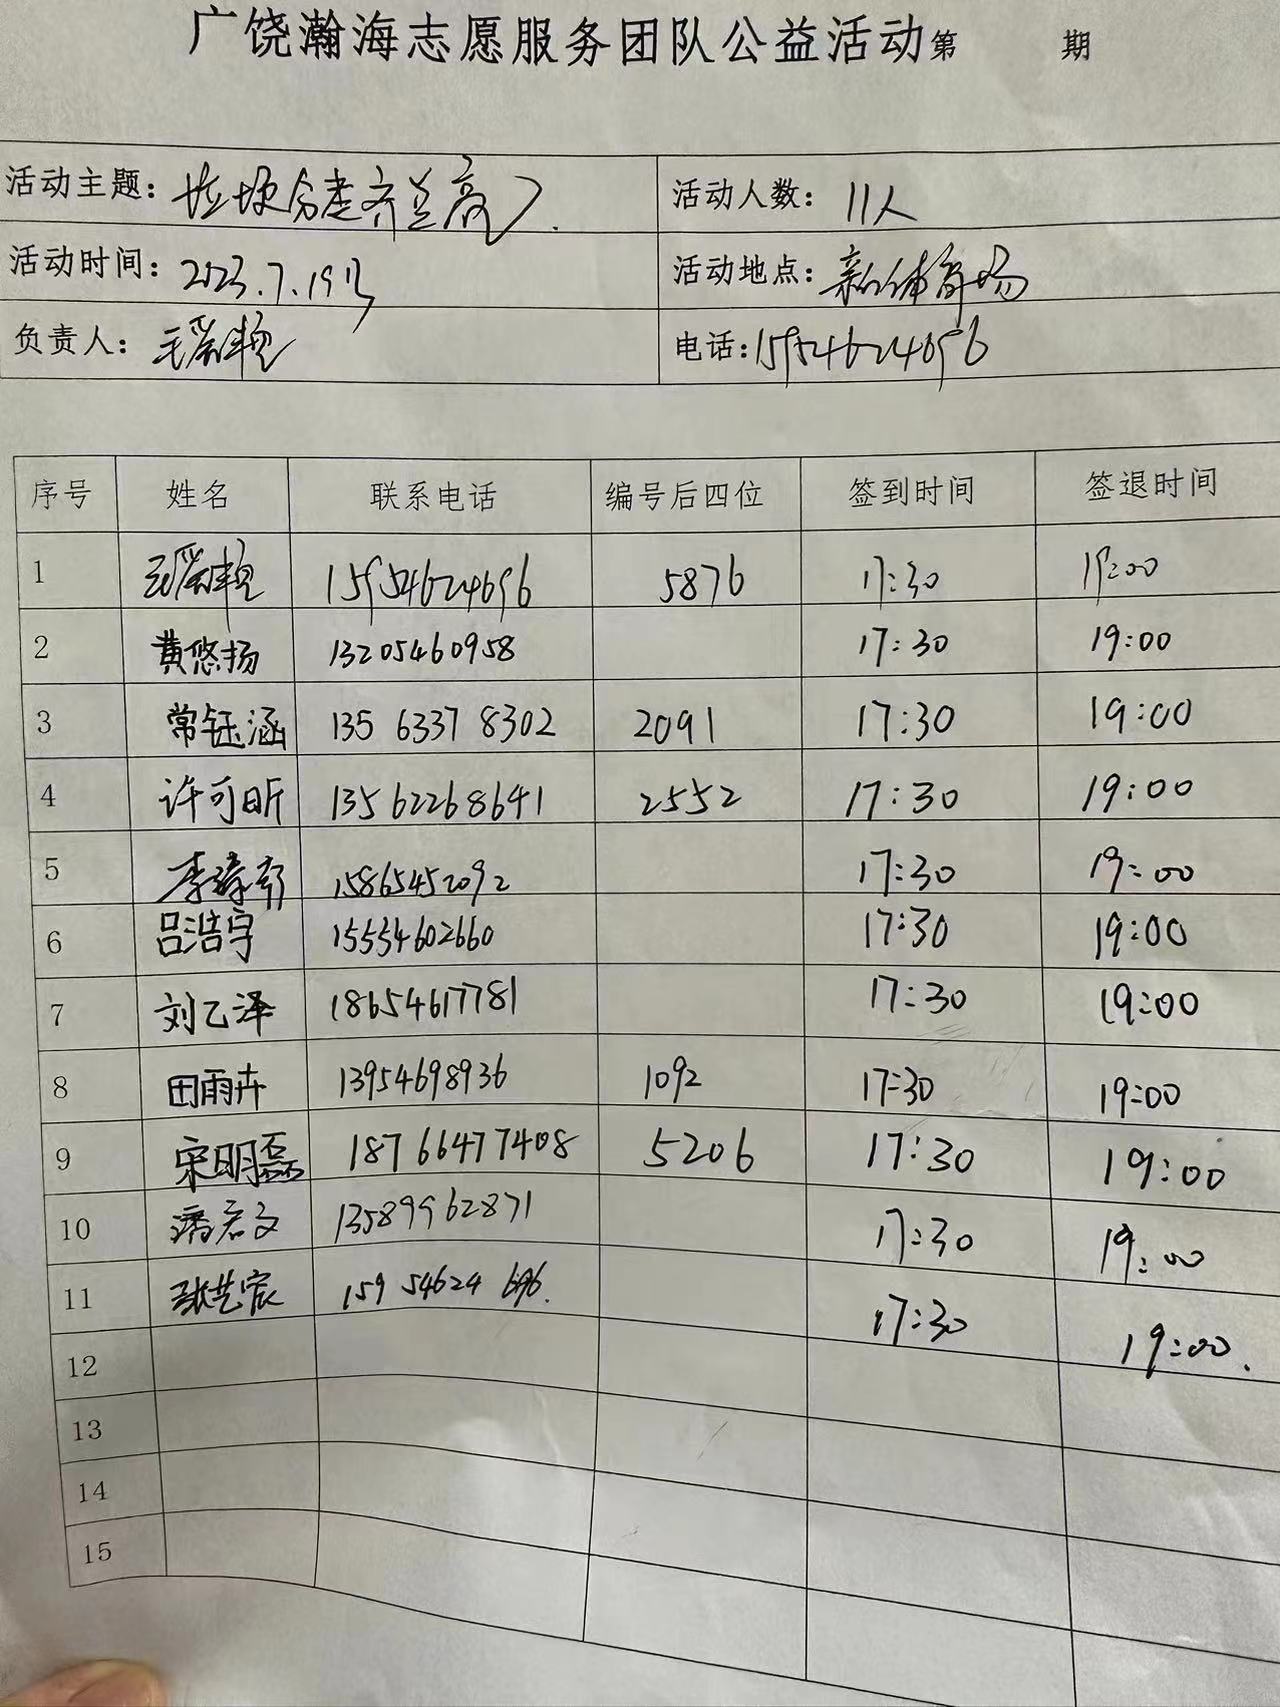 广饶瀚海志愿服务团队公益活动第 期
活动主题: 垃圾分类齐 活动人数: 11人
活动时间: 2023.7.19号 活动地点: 新体育场
负责人: 电话:15954624696
序号 姓名 联系电话 编号后四位 签到时间 签退时间
1 15954624696 5876 17:30 19:00
2 黄悠扬 13205460958 17:30 19:00
3 常钰涵 135 6337 8302 2091 17:30 19:00
4 许可昕 13562268641 2552 17:30 19:00
5 李 15865452092 17:30 19:00
6 吕浩宇 15554602660 17:30 19:00
7 刘乙泽 18654617781 17:30 19:00
8 田雨卉 13954698936 1092 17:30 19:00
9 宋明磊 18766477408 5206 17:30 19:00
10 潘君文 13589962871 17:30 19:00
11 张艺宸 159 54624 696. 17:30 19:00.
12
13
14
15